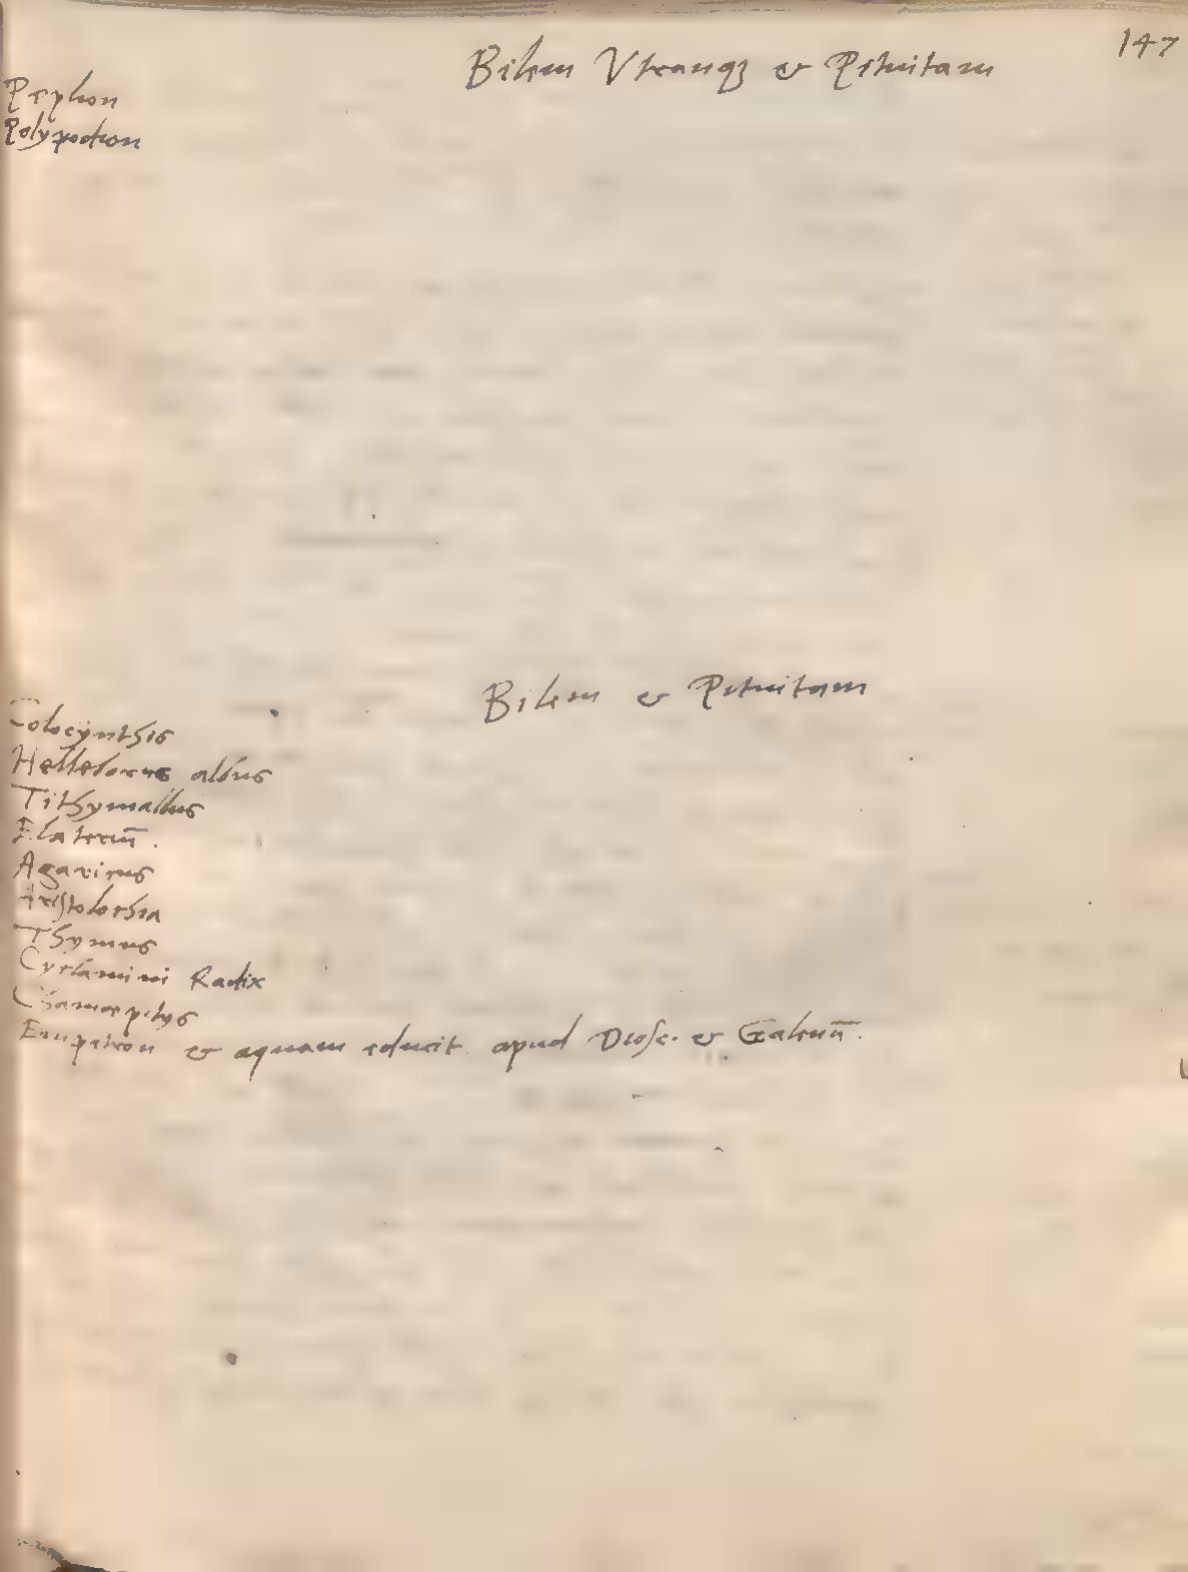 147
Bilem Vtranq₃ et Pituitam
Peplion
Polypodion
Bilem et Pituitam
Colocynthis
Helleborus albus
Tithymallus
Elateriū.
Agaricus
Aristolochia
Thymus
Cyclamini Radix
Chamæpitys
Empetron et aquam educit apud Diosc. et Galenū.